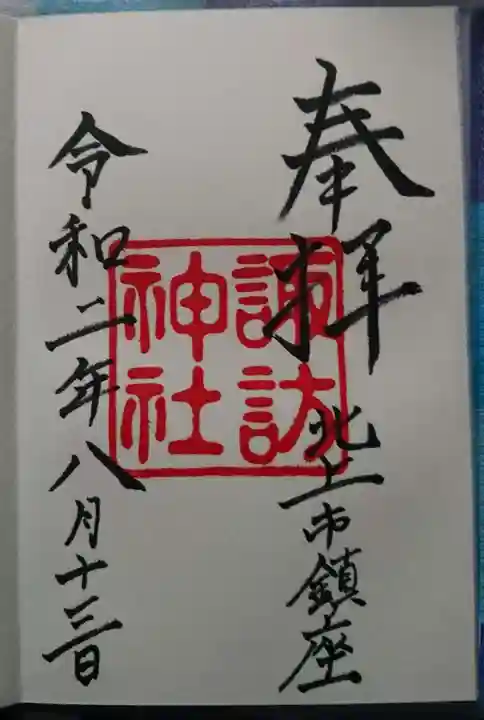 奉拝
北上市鎮座
諏訪
神社
令和二年八月十三日